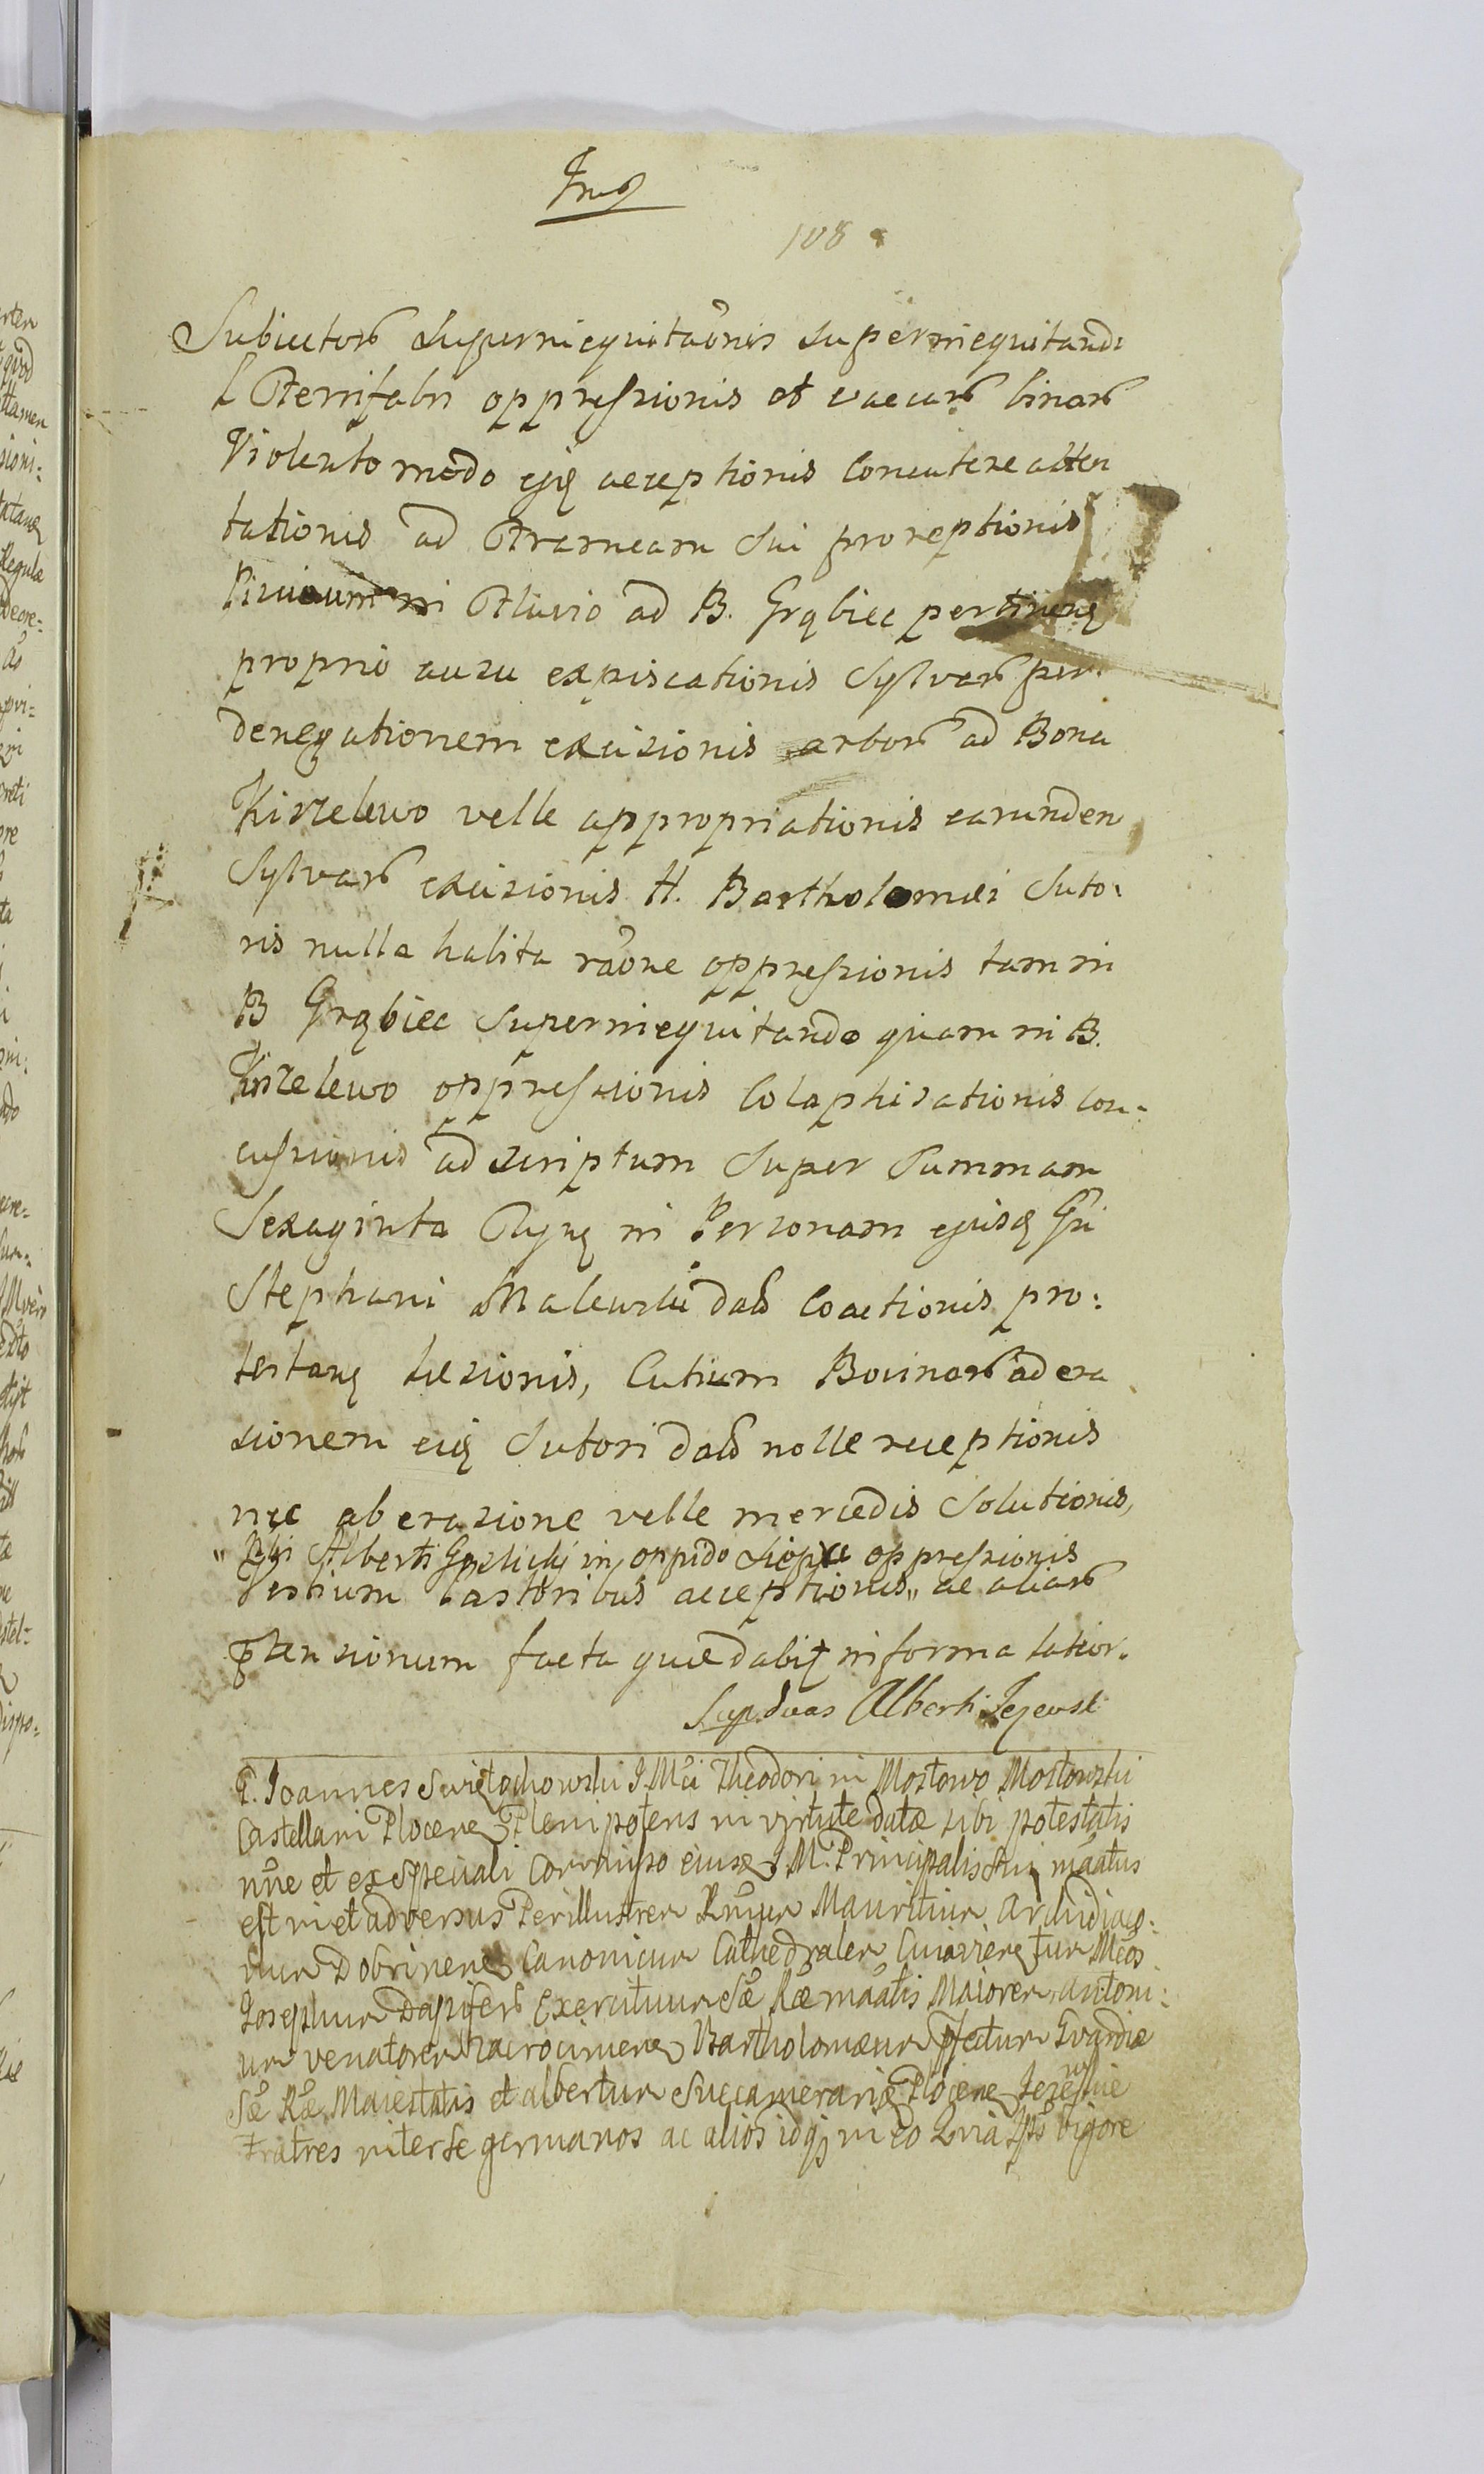 108
Subiectorũ superinequitaõnis superinequitandi
oppressionis et vaccarũ binarũ
Violento modo ejq acceptionis concutere atten
tationis ad sui proreptionis
Piscium in Fluvio ad B. Grąbiec pertinenq
proprio ausu expiscationis Sylvarũ per
denegationem excisionis arborũ ad Bona
Kisielewo velle appropriationis earunden
Sylvarũ excisionis H. Bartholomæi Suto:
ris nulla habita raõne oppressionis tam in
B Grąbiec superinequitando quam in B.
Kisielewo oppressionis Colaphisationis con:
cussionis ad scriptum super Summam
Sexaginta in Personam ejusq Gsi
Stephani dað coactionis pro:
testanq læsionis, Cutium Bovinarũ ad era
sionem eiq Sutori dað nolle receptionis
nec ab erasione velle mercedis Solutionis,
" Alberti in oppido oppressionis
Pastoribus acceptionis " ac aliarũ
ptensionum facta quæ dabit in forma latior.
Sup. duas Alberti Jezewsk
G. Joannes Swiętochowski J. Mci Theodori in Mostowo Mostowski
Castellani Plocenq Plenipotens in virtute datæ sibi potestatis
nẽe et ex speciali Commisso eiusq J. M. Principalis sui mãatus
est in et adversus Perillustrem Rñum Mauritium Archidiaco:
num Dobrinenq Canonicum Cathedralem Cuiavienq tum Mcos
Josephum Dapiferũ Exercituum Sæ Ræ mãatis Maiorem, Antoni:
um venatorem Zacrocimenq Bartholomæum Pfectum Gvardiæ
Sæ Ræ Maiestatis et albertum Succamerariq Plocenq Jezewskie
Fratres inter se germanos ac alios idq in eo Quia Ipsi vigore